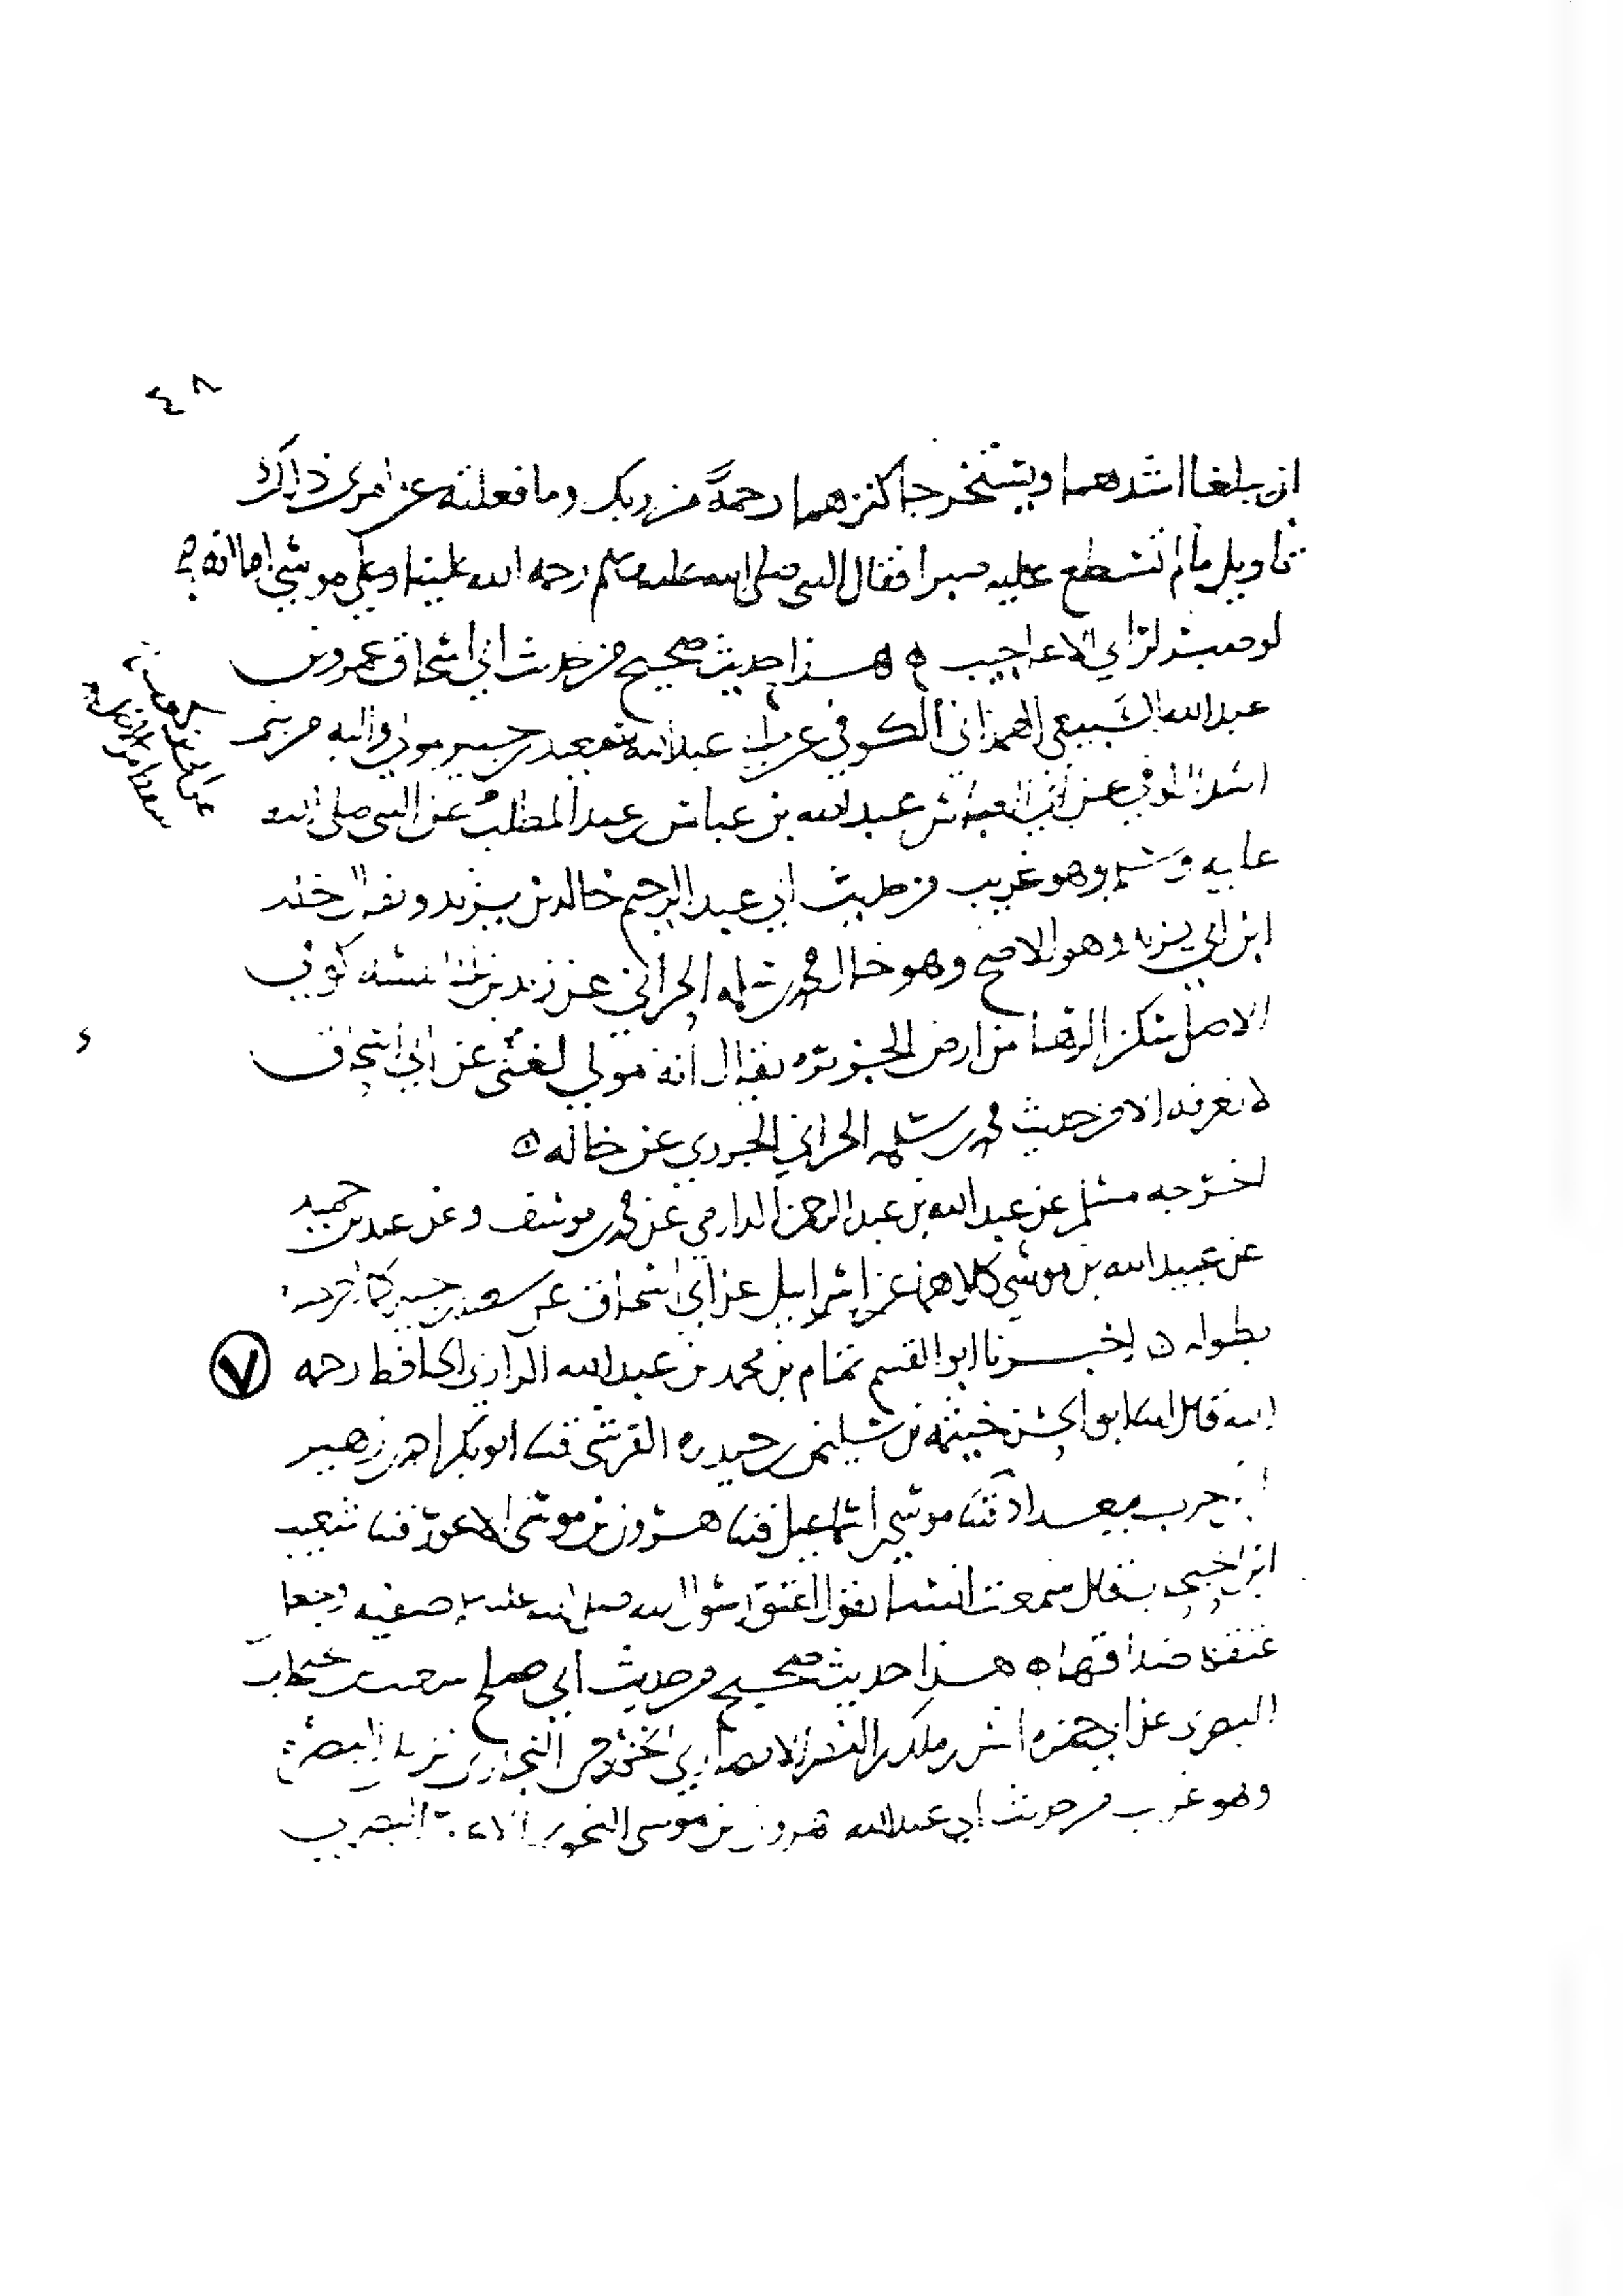 ٤٨
ان يبلغا اشدهما ويستخرجا كنزهما رحمة من ربك وما فعلته عن امري ذلك
تاويل ما لم تسطع عليه صبرا فقال النبي صلى الله عليه وسلم رحمة الله علينا وعلى موسى اما انه
لو صبر لراى الاعاجيب ه هذا حديث صحيح من حديث ابي اسحاق عمرو بن
عبد الله السبيعي الهمداني الكوفي عن ابي عبد الله سعيد بن جبير مولى والبه من بني
اسد الكوفي عن ابي العباس عبد الله بن عباس بن عبد المطلب عن النبي صلى الله
عليه وسلم وهو غريب من حديث ابي عبد الرحيم خالد بن يزيد ويقال خلد
ابن ابي يزيد وهو الاصح وهو خال محمد بن سلمه الحراني عن زيد بن ابي انيسه كوفي
الاصل سكن الرها من ارض الجزيره يقال انه مولى لغني عن ابي اسحاق
لا نعرفه الا من حديث محمد بن سلمه الحراني الجزري عن خاله ه
اخرجه مسلم عن عبد الله بن عبد الرحمن الدارمي عن محمد بن يوسف وعن عبد بن حميد
عن عبيد الله بن موسى كلاهما عن اسرايل عن ابي اسحاق عن سعيد بن جبير كما اخرجه
بطوله ه اخبرنا ابو القسم تمام بن محمد بن عبد الله الرازي الحافظ رحمه
٧
الله قال ابنا ابو الحسن خيثمه بن سليمن بن حيدره القرشي قثنا ابو بكر احمد بن زهير
ابن حرب ببغداد قثنا موسى بن اسماعيل قثنا هرون بن موسى الاعور قثنا شعيب
ابن الحبحاب قال سمعت انسا يقول اعتق رسول الله صلى الله عليه صفيه وجعل
عتقها صداقها ه هذا حديث صحيح من حديث ابي صلح شعيب بن الحبحاب
البصري عن ابي حمزه انس بن ملك بن النضر الانصاري الخزرجي النجاري نزيل البصره
وهو غريب من حديث ابي عبد الله هرون بن موسى النحوي الاعور البصري